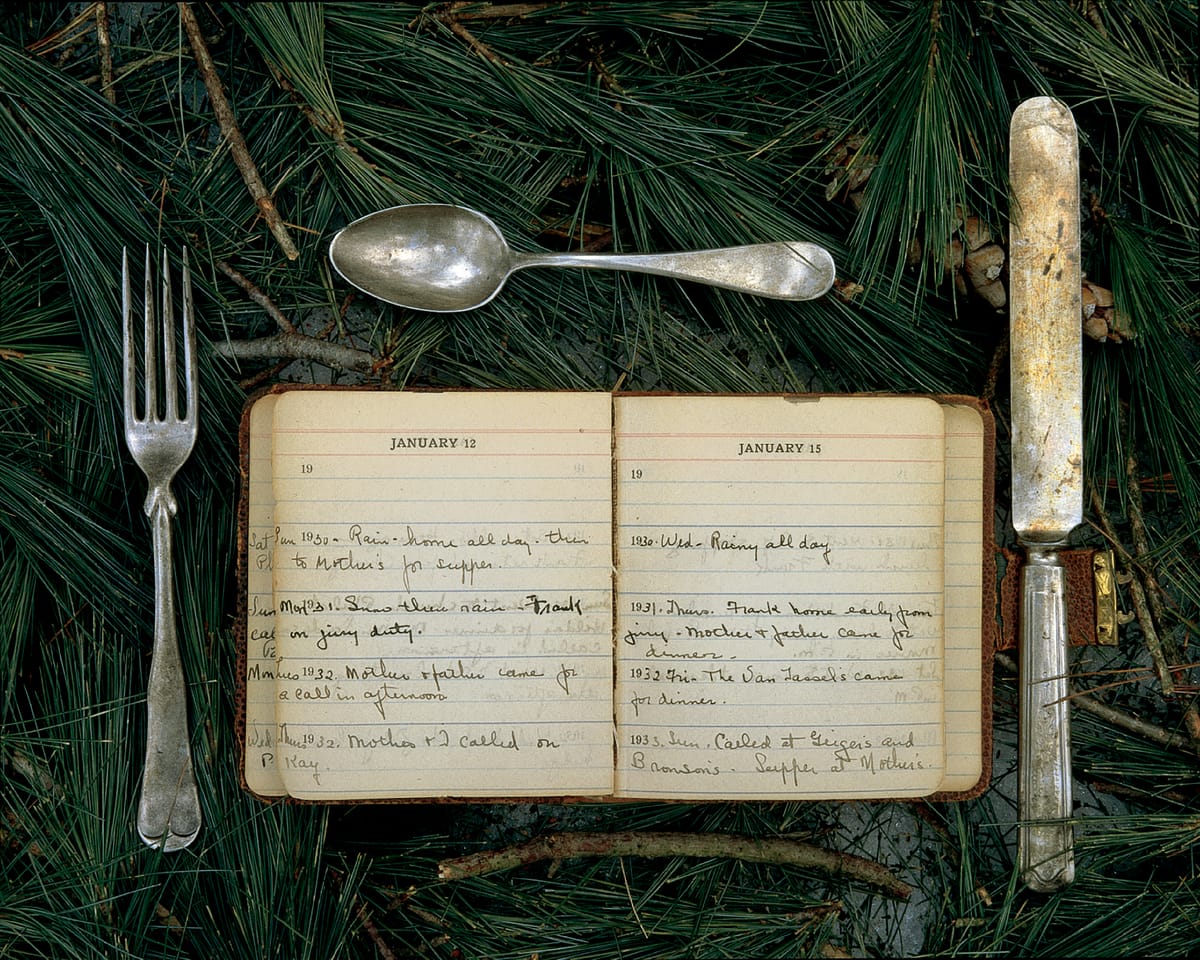 JANUARY 12
19
Sun 1930- Rain- home all day- then
to Mother's for supper.
Mon 1931. Snow then rain Frank
on jury duty.
1932. Mother & father came for
a call in afternoon
Thurs 1932. Mother & I called on
Kay.
Sat
Sun
Mon
Wed
JANUARY 15
19
1930- Wed- Rainy all day
1931. Thurs. Frank home early from
jury - Mother & father came for
dinner.
1932 Fri- The Van Tassel's came
for dinner.
1933. Sun. Called at Geiger's and
Bronson's. Supper at Mother's.